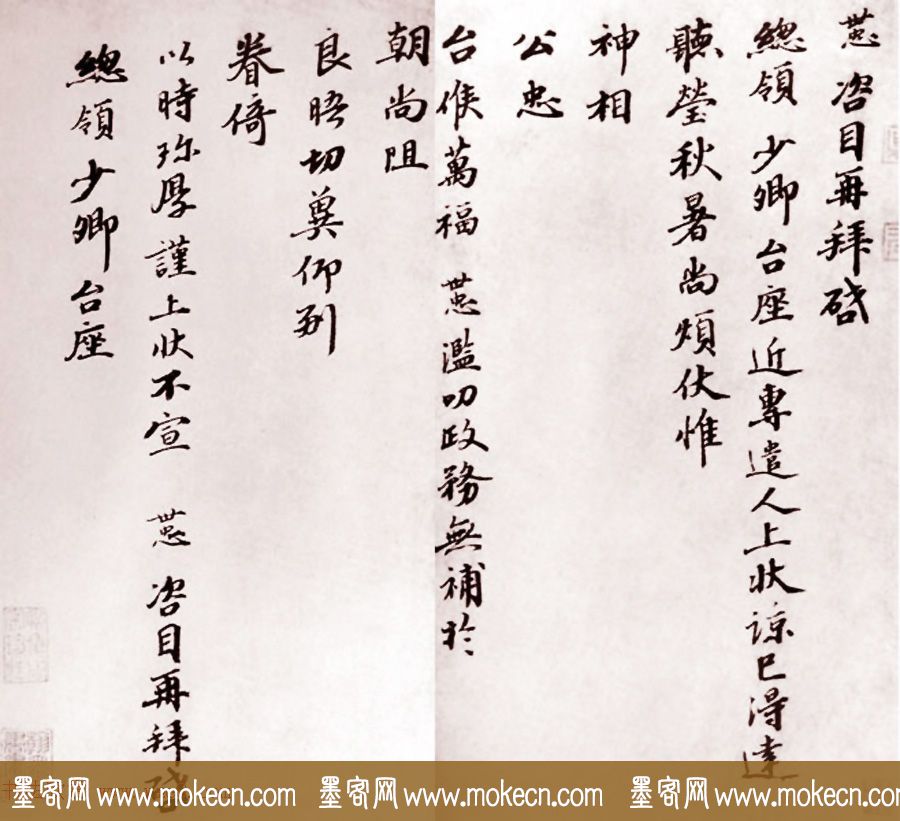 咨目再拜啓
總領少卿台座近專遣人上狀諒已得達
聽瑩秋暑尚煩伏惟
神相
公忠
台候萬福 濫叨政務無補於
朝尚阻
良晤切冀仰副
眷倚
以時珎厚謹上狀不宣 咨目再拜啓
總領少卿台座
墨客网 www.mokecn.com 墨客网 www.mokecn.com 墨客网 www.mokecn.com